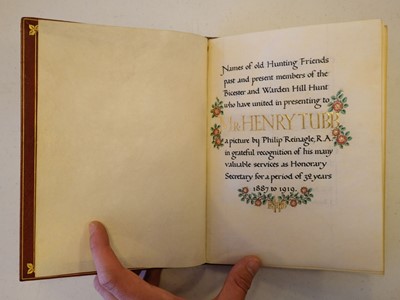 Names of old Hunting Friends
past and present members of the
Bicester and Warden Hill Hunt
who have united in presenting to
Mr. HENRY TUBB
a picture by Philip Reinagle, R.A.
in grateful recognition of his many
valuable services as Honorary
Secretary for a period of 32 years
1887 to 1919.